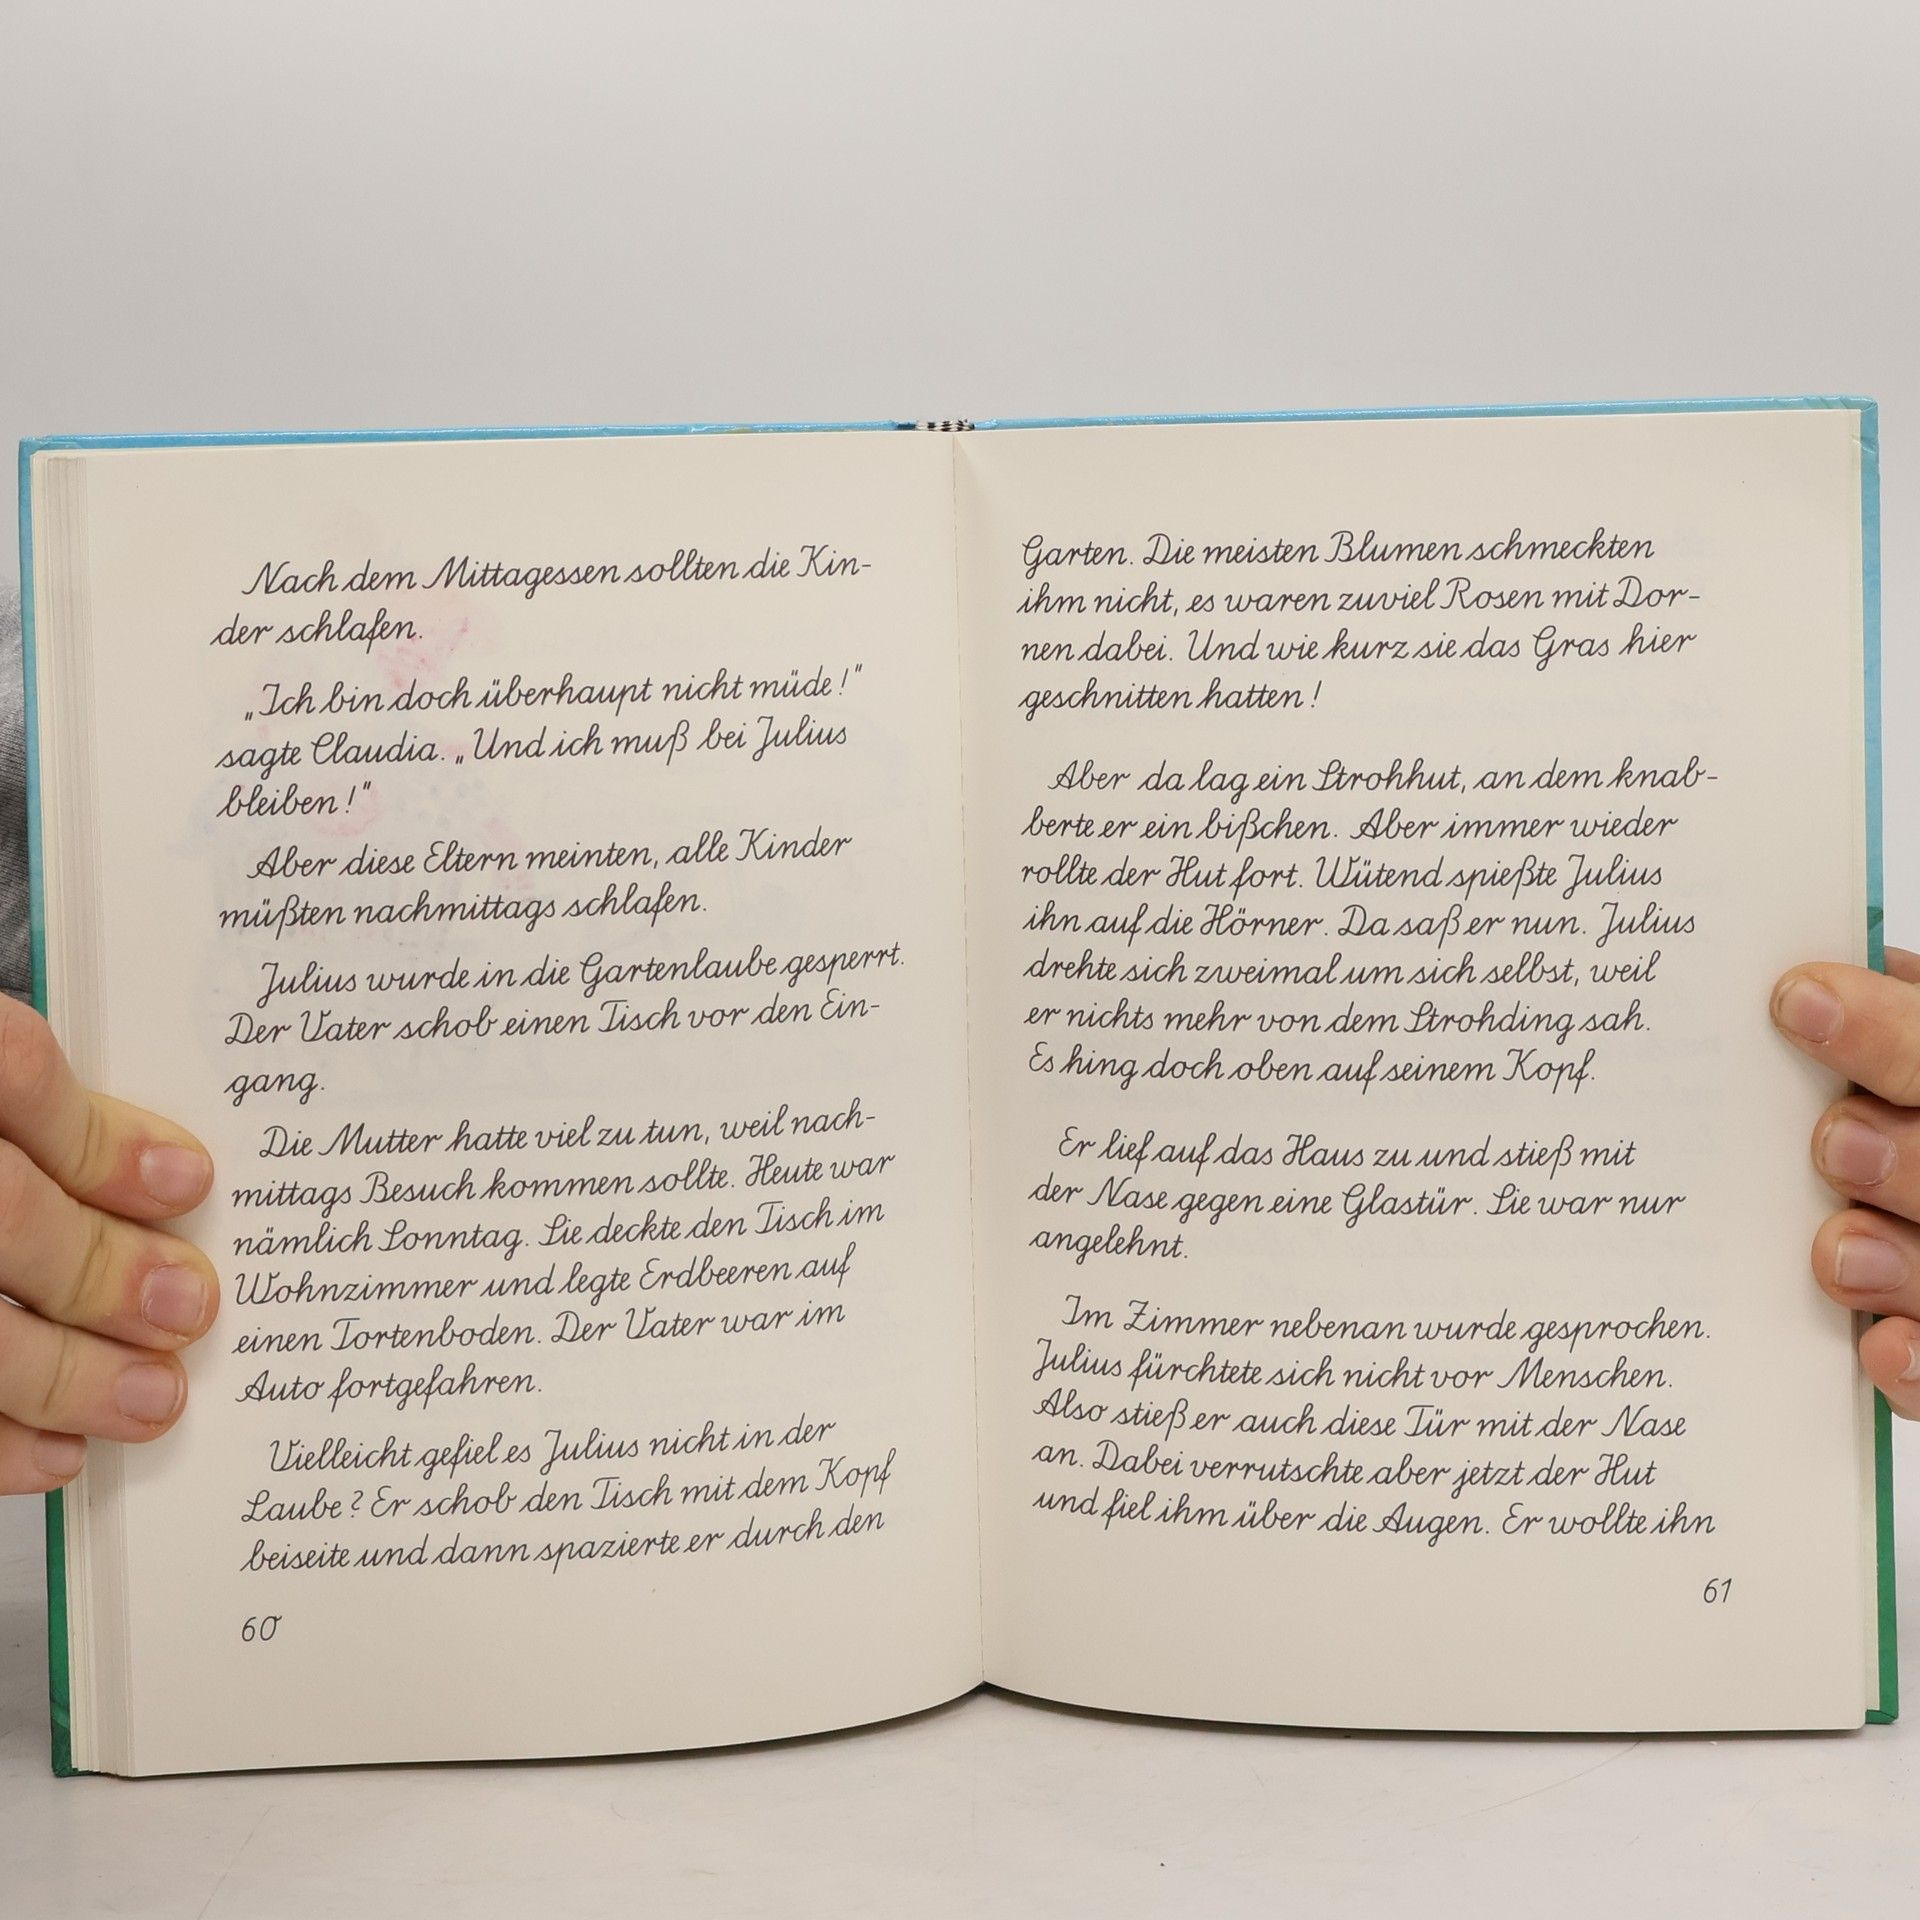 Nach dem Mittagessen sollten die Kin-
der schlafen.
„Ich bin doch überhaupt nicht müde!"
sagte Claudia. „Und ich muß bei Julius
bleiben!"
Aber diese Eltern meinten, alle Kinder
müßten nachmittags schlafen.
Julius wurde in die Gartenlaube gesperrt.
Der Vater schob einen Tisch vor den Ein-
gang.
Die Mutter hatte viel zu tun, weil nach-
mittags Besuch kommen sollte. Heute war
nämlich Sonntag. Sie deckte den Tisch im
Wohnzimmer und legte Erdbeeren auf
einen Tortenboden. Der Vater war im
Auto fortgefahren.
Vielleicht gefiel es Julius nicht in der
Laube? Er schob den Tisch mit dem Kopf
beiseite und dann spazierte er durch den
60
Garten. Die meisten Blumen schmeckten
ihm nicht, es waren zuviel Rosen mit Dor-
nen dabei. Und wie kurz sie das Gras hier
geschnitten hatten!
Aber da lag ein Strohhut, an dem knab-
berte er ein bißchen. Aber immer wieder
rollte der Hut fort. Wütend spießte Julius
ihn auf die Hörner. Da saß er nun. Julius
drehte sich zweimal um sich selbst, weil
er nichts mehr von dem Strohding sah.
Es hing doch oben auf seinem Kopf.
Er lief auf das Haus zu und stieß mit
der Nase gegen eine Glastür. Sie war nur
angelehnt.
Im Zimmer nebenan wurde gesprochen.
Julius fürchtete sich nicht vor Menschen.
Also stieß er auch diese Tür mit der Nase
an. Dabei verrutschte aber jetzt der Hut
und fiel ihm über die Augen. Er wollte ihn
61